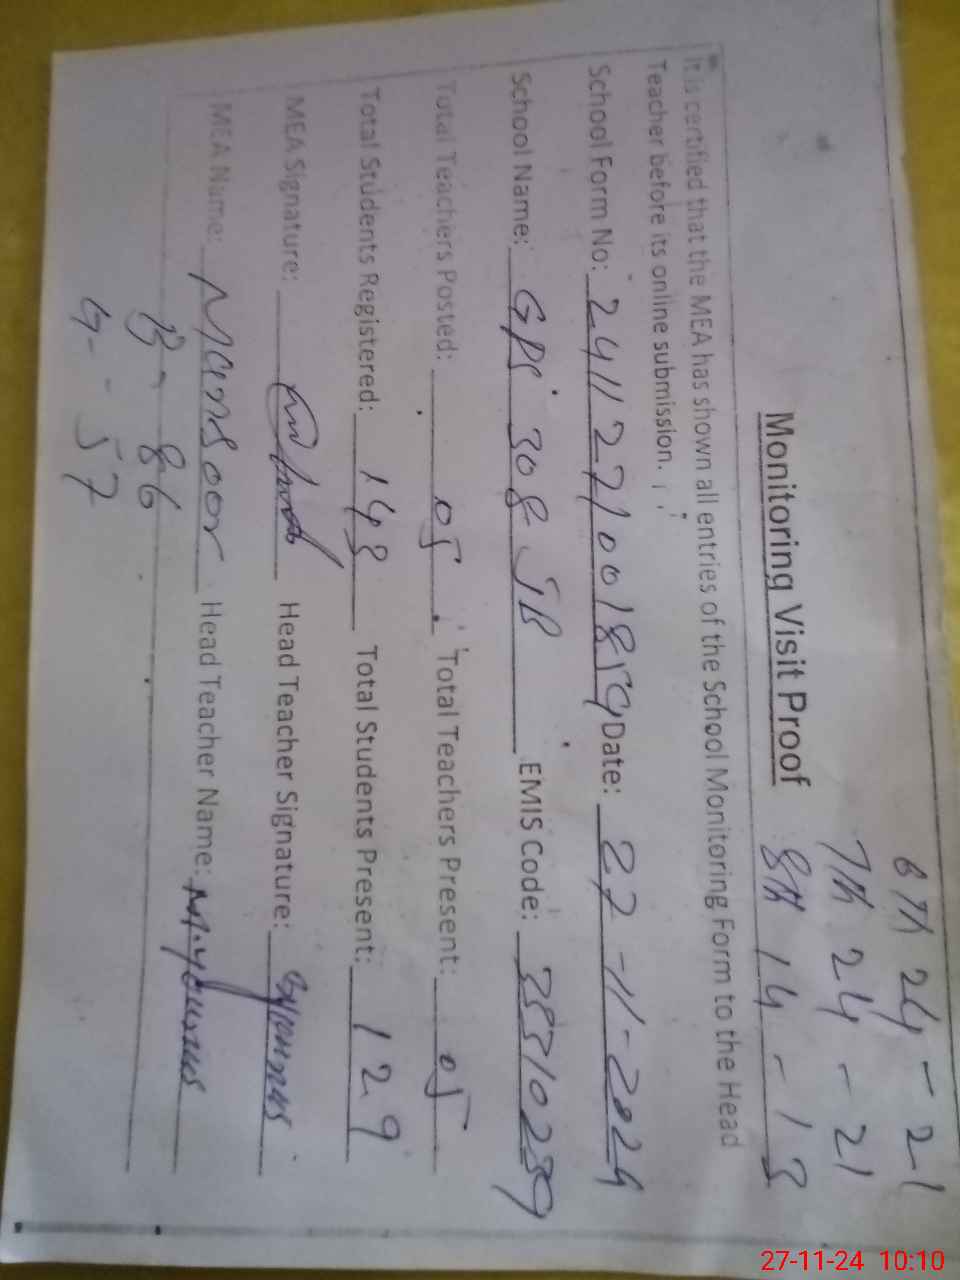 6th 24 - 21
7th 24 - 21
Monitoring Visit Proof 8th 14 - 13
It is certified that the MEA has shown all entries of the School Monitoring Form to the Head
Teacher before its online submission.
School Form No: 2411271001859 Date: 27-11-2024
School Name: GPS 308 JB EMIS Code: 33310239
Total Teachers Posted: 05 Total Teachers Present: 05
Total Students Registered: 148 Total Students Present: 129
MEA Signature: Head Teacher Signature: Myounus
MEA Name: Mansoor Head Teacher Name: M.younus
B - 86
G - 57
27-11-24 10:10